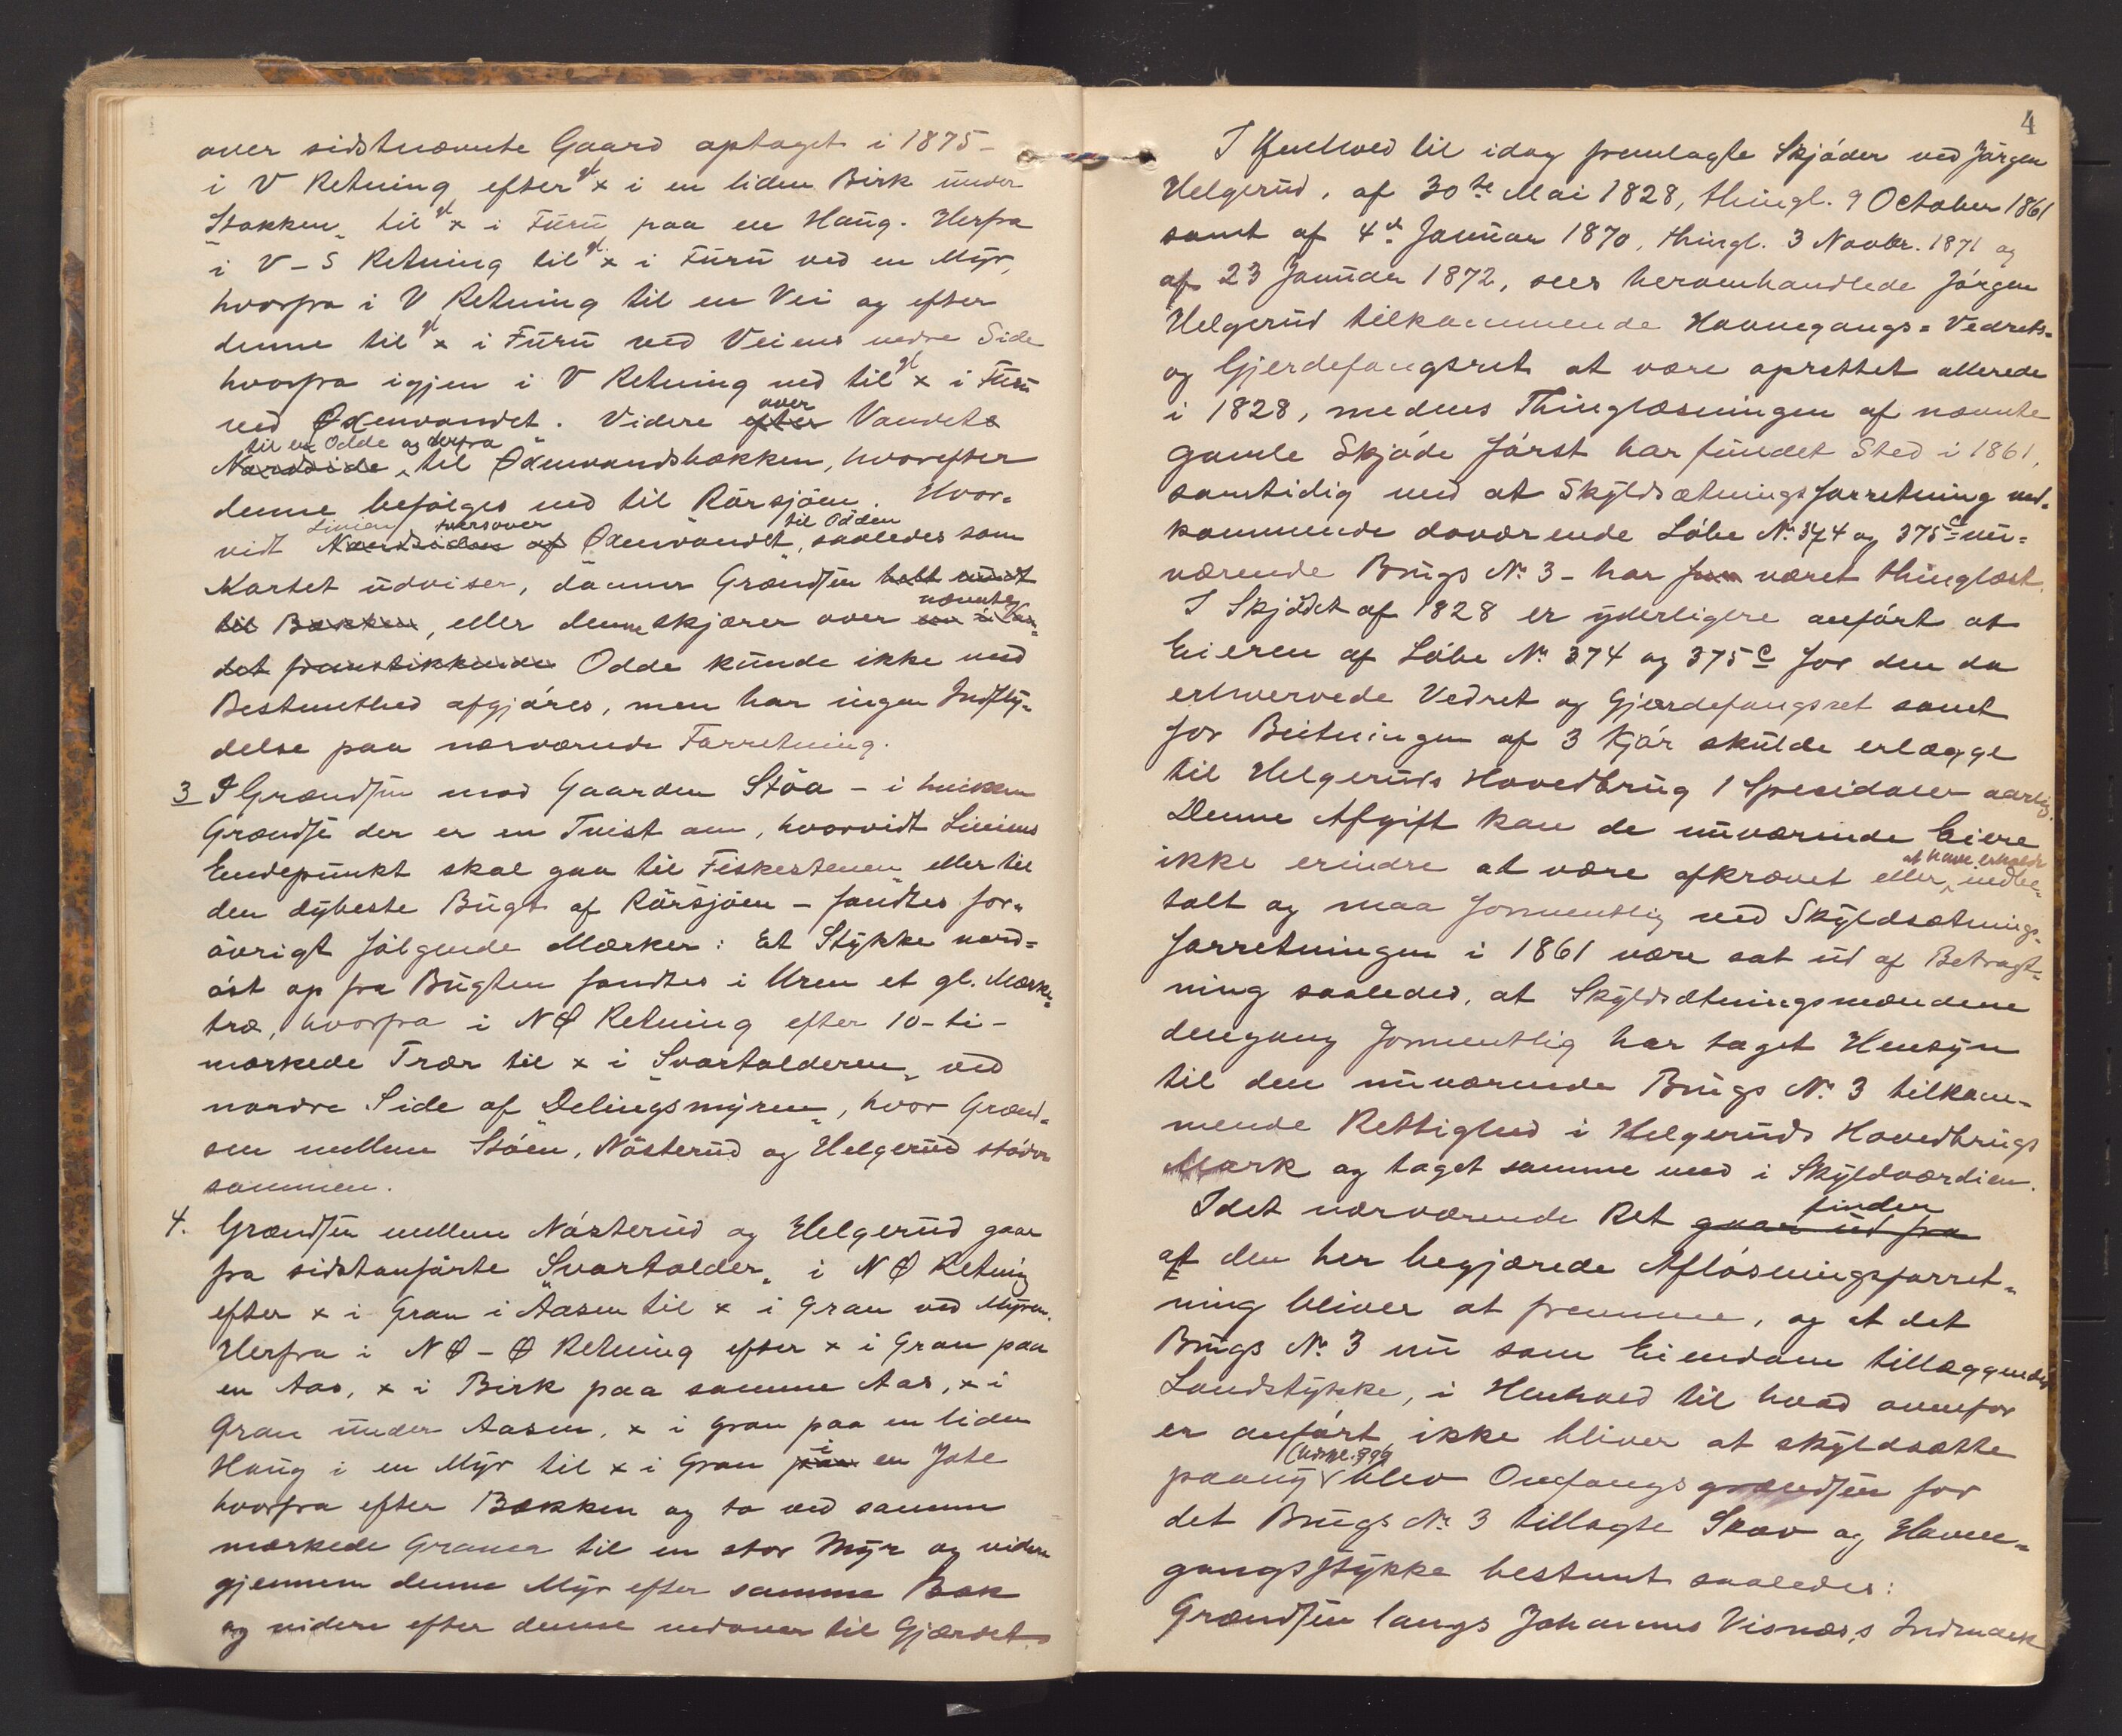 over sidstnævnte Gaard optaget i 1875 –
i V Retning efter gl x i en liden Birk under
"Stakken" til gl x i Furu paa en Haug. Herfra
i V – S Retning til gl. x i Furu ved en Myr,
hvorfra i V Retning til en Vei og efter
denne til gl x i Furu ved Veiens nedre Side
hvorfra igjen i V Retning ned til gl x i Furu
over
ved Øxenvandet. Videre efter Vandets
til en Odde og derfra
Nordside til Øxenvandsbækken, hvorefter
denne befölges ned til Rörsjöen. Hvor-
Linien tversover til Odden
vidt Nordsiden af Øxenvandet, saaledes som
Kartet udviser, danner Grændsen helt rundt
nævnte
til Bækken, eller denne skjærer over en i Van-
det fremstikkende Odde kunde ikke med
Bestemthed afgjöres, men har ingen Indfly-
delse paa nærværende Forretning.
3 I Grændsen mod Gaarden Stöa – i hvilken
Grændse der er en Tvist om, hvorvidt Liniens
Endepunkt skal gaa til "Fiskestenen" eller til
den dybeste Bugt af Rörsjöen – fandtes for-
övrigt fölgende Mærker: Et Stykke nord-
öst op fra Bugten fandtes i Uren et gl. Mærke-
træ, hvorfra i NØ Retning efter 10 – ti –
mærkede Trær til x i "Svartolderen" ved
nordre Side af "Delingsmyren", hvor Grænd-
sen mellem Stöen, Nösterud og Helgerud stöder
sammen.
4. Grændsen mellem Nösterud og Helgerud gaar
fra sidstanförte "Svartolder" i NØ Retning
efter x i Gran i Aasen til x i Gran ved Myren.
Herfra i NØ – Ø Retning efter x i Gran paa
en Aas, x i Birk paa samme Aas, x i
Gran under Aasen, x i Gran paa en liden
i
Haug i en Myr til x i Gran paa en Jote
hvorfra efter Bækken og to ved samme
mærkede Graner til en stor Myr og videre
gjennem denne Myr efter samme Bæk
og videre efter denne nedover til Gjærdet.
4
I Henhold til idag fremlagte Skjöder ved Jörgen
Helgerud, af 30te Mai 1828, thingl. 9 October 1861
samt af 4de Januar 1870, thingl. 3 Novbr. 1871 og
af 23 Januar 1872, sees heromhandlede Jörgen
Helgerud tilkommende Havnegangs- Vedrets-
og Gjerdefangsret at være oprettet allerede
i 1828, medens Thinglæsningen af nævnte
gamle Skjöde först har fundet Sted i 1861,
samtidig med at Skyldsætningsforretning ved-
kommende daværende Löbe No 374 og 375c – nu-
værende Brugs No 3 – har været thinglæst.
I Skjödet af 1828 er yderligere anfört at
Eieren af Löbe No 374 og 375c for den da
erhvervede Vedret og Gjærdefangsret samt
for Beitningen af 3 Kjör skulde erlægge
til Helgeruds Hovedbrug 1 Speciedaler aarlig.
Denne Afgift kan de nuværende Eiere
at have erholdt
ikke erindre at være afkrævet eller indbe-
talt og maa formentlig ved Skyldsætnings-
forretningen i 1861 være sat ud af Betragt-
ning saaledes, at Skyldsætningsmændene
dengang formentlig har taget Hensyn
til den nuværende Brugs No 3 tilkom-
mende Rettighed i Helgeruds Hovedbrugs
Mark og taget samme med i Skyldværdien.
finder
Idet nærværende Ret gaar ud fra
at den her begjærede Aflösningsforret-
ning bliver at fremme, og at det
Brugs No 3 nu som Eiendom tillæggendes
Landstykke, i Henhold til hvad ovenfor
er anfört ikke bliver at skyldsætte
paany blev Omfangsgrændsen for
det Brugs No 3 tillagte Skov og Havne-
gangsstykke bestemt saaledes:
Grændsen langs Johannes Visnæs's Indmark